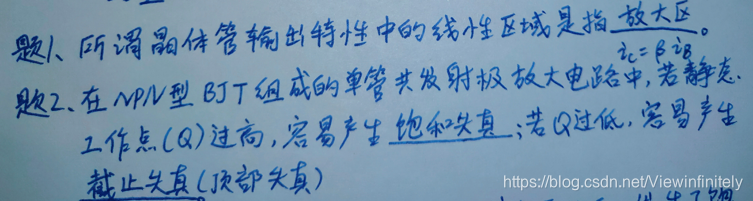 题1、所谓晶体管输出特性中的线性区域是指放大区。
ic=βiB
题2、在NPN型BJT组成的单管共发射极放大电路中,若静态
工作点(Q)过高,容易产生饱和失真;若Q过低,容易产生
截止失真(顶部失真)
https://blog.csdn.net/Viewinfinitely